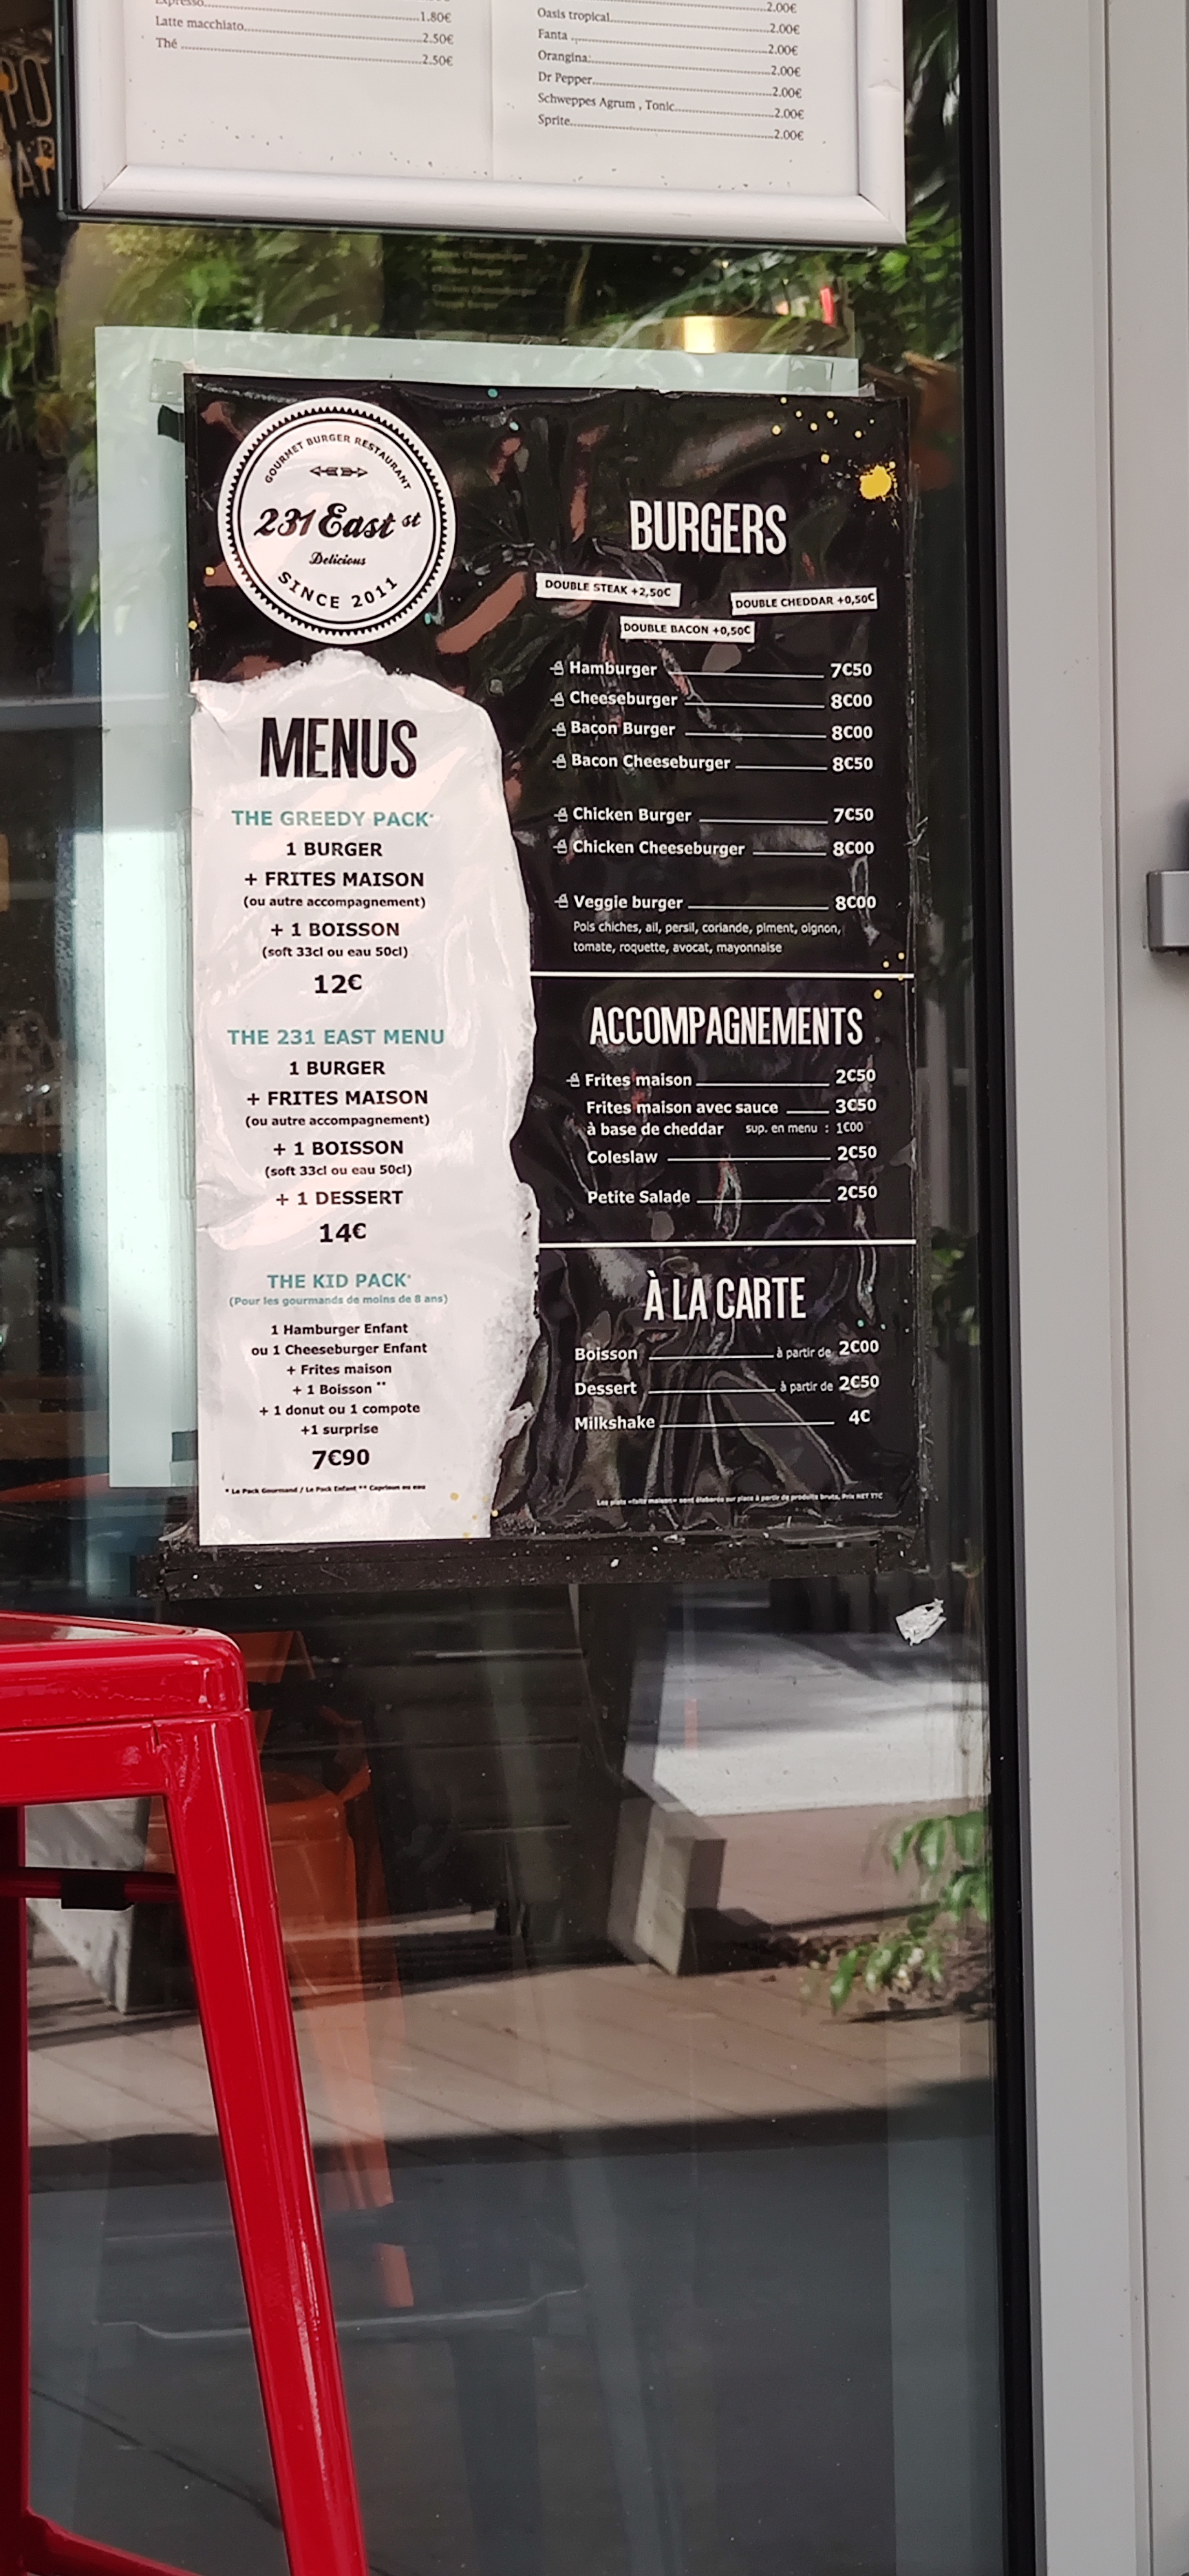 1.80€
Latte macchiato 2.50€
Thé 2.50€
2.00€
Oasis tropical 2.00€
Fanta 2.00€
Orangina 2.00€
Dr Pepper 2.00€
Schweppes Agrum , Tonic 2.00€
Sprite 2.00€
GOURMET BURGER RESTAURANT
231 East st
Delicious
SINCE 2011
MENUS
THE GREEDY PACK*
1 BURGER
+ FRITES MAISON
(ou autre accompagnement)
+ 1 BOISSON
(soft 33cl ou eau 50cl)
12€
THE 231 EAST MENU
1 BURGER
+ FRITES MAISON
(ou autre accompagnement)
+ 1 BOISSON
(soft 33cl ou eau 50cl)
+ 1 DESSERT
14€
THE KID PACK*
(Pour les gourmands de moins de 8 ans)
1 Hamburger Enfant
ou 1 Cheeseburger Enfant
+ Frites maison
+ 1 Boisson **
+ 1 donut ou 1 compote
+1 surprise
7€90
* Le Pack Gourmand / Le Pack Enfant ** Caprisun ou eau
BURGERS
DOUBLE STEAK +2,50€
DOUBLE CHEDDAR +0,50€
DOUBLE BACON +0,50€
Hamburger 7€50
Cheeseburger 8€00
Bacon Burger 8€00
Bacon Cheeseburger 8€50
Chicken Burger 7€50
Chicken Cheeseburger 8€00
Veggie burger 8€00
Pois chiches, ail, persil, coriande, piment, oignon,
tomate, roquette, avocat, mayonnaise
ACCOMPAGNEMENTS
Frites maison 2€50
Frites maison avec sauce 3€50
à base de cheddar sup. en menu : 1€00
Coleslaw 2€50
Petite Salade 2€50
À LA CARTE
Boisson à partir de 2€00
Dessert à partir de 2€50
Milkshake 4€
Les plats «faits maison» sont élaborés sur place à partir de produits bruts. Prix NET TTC